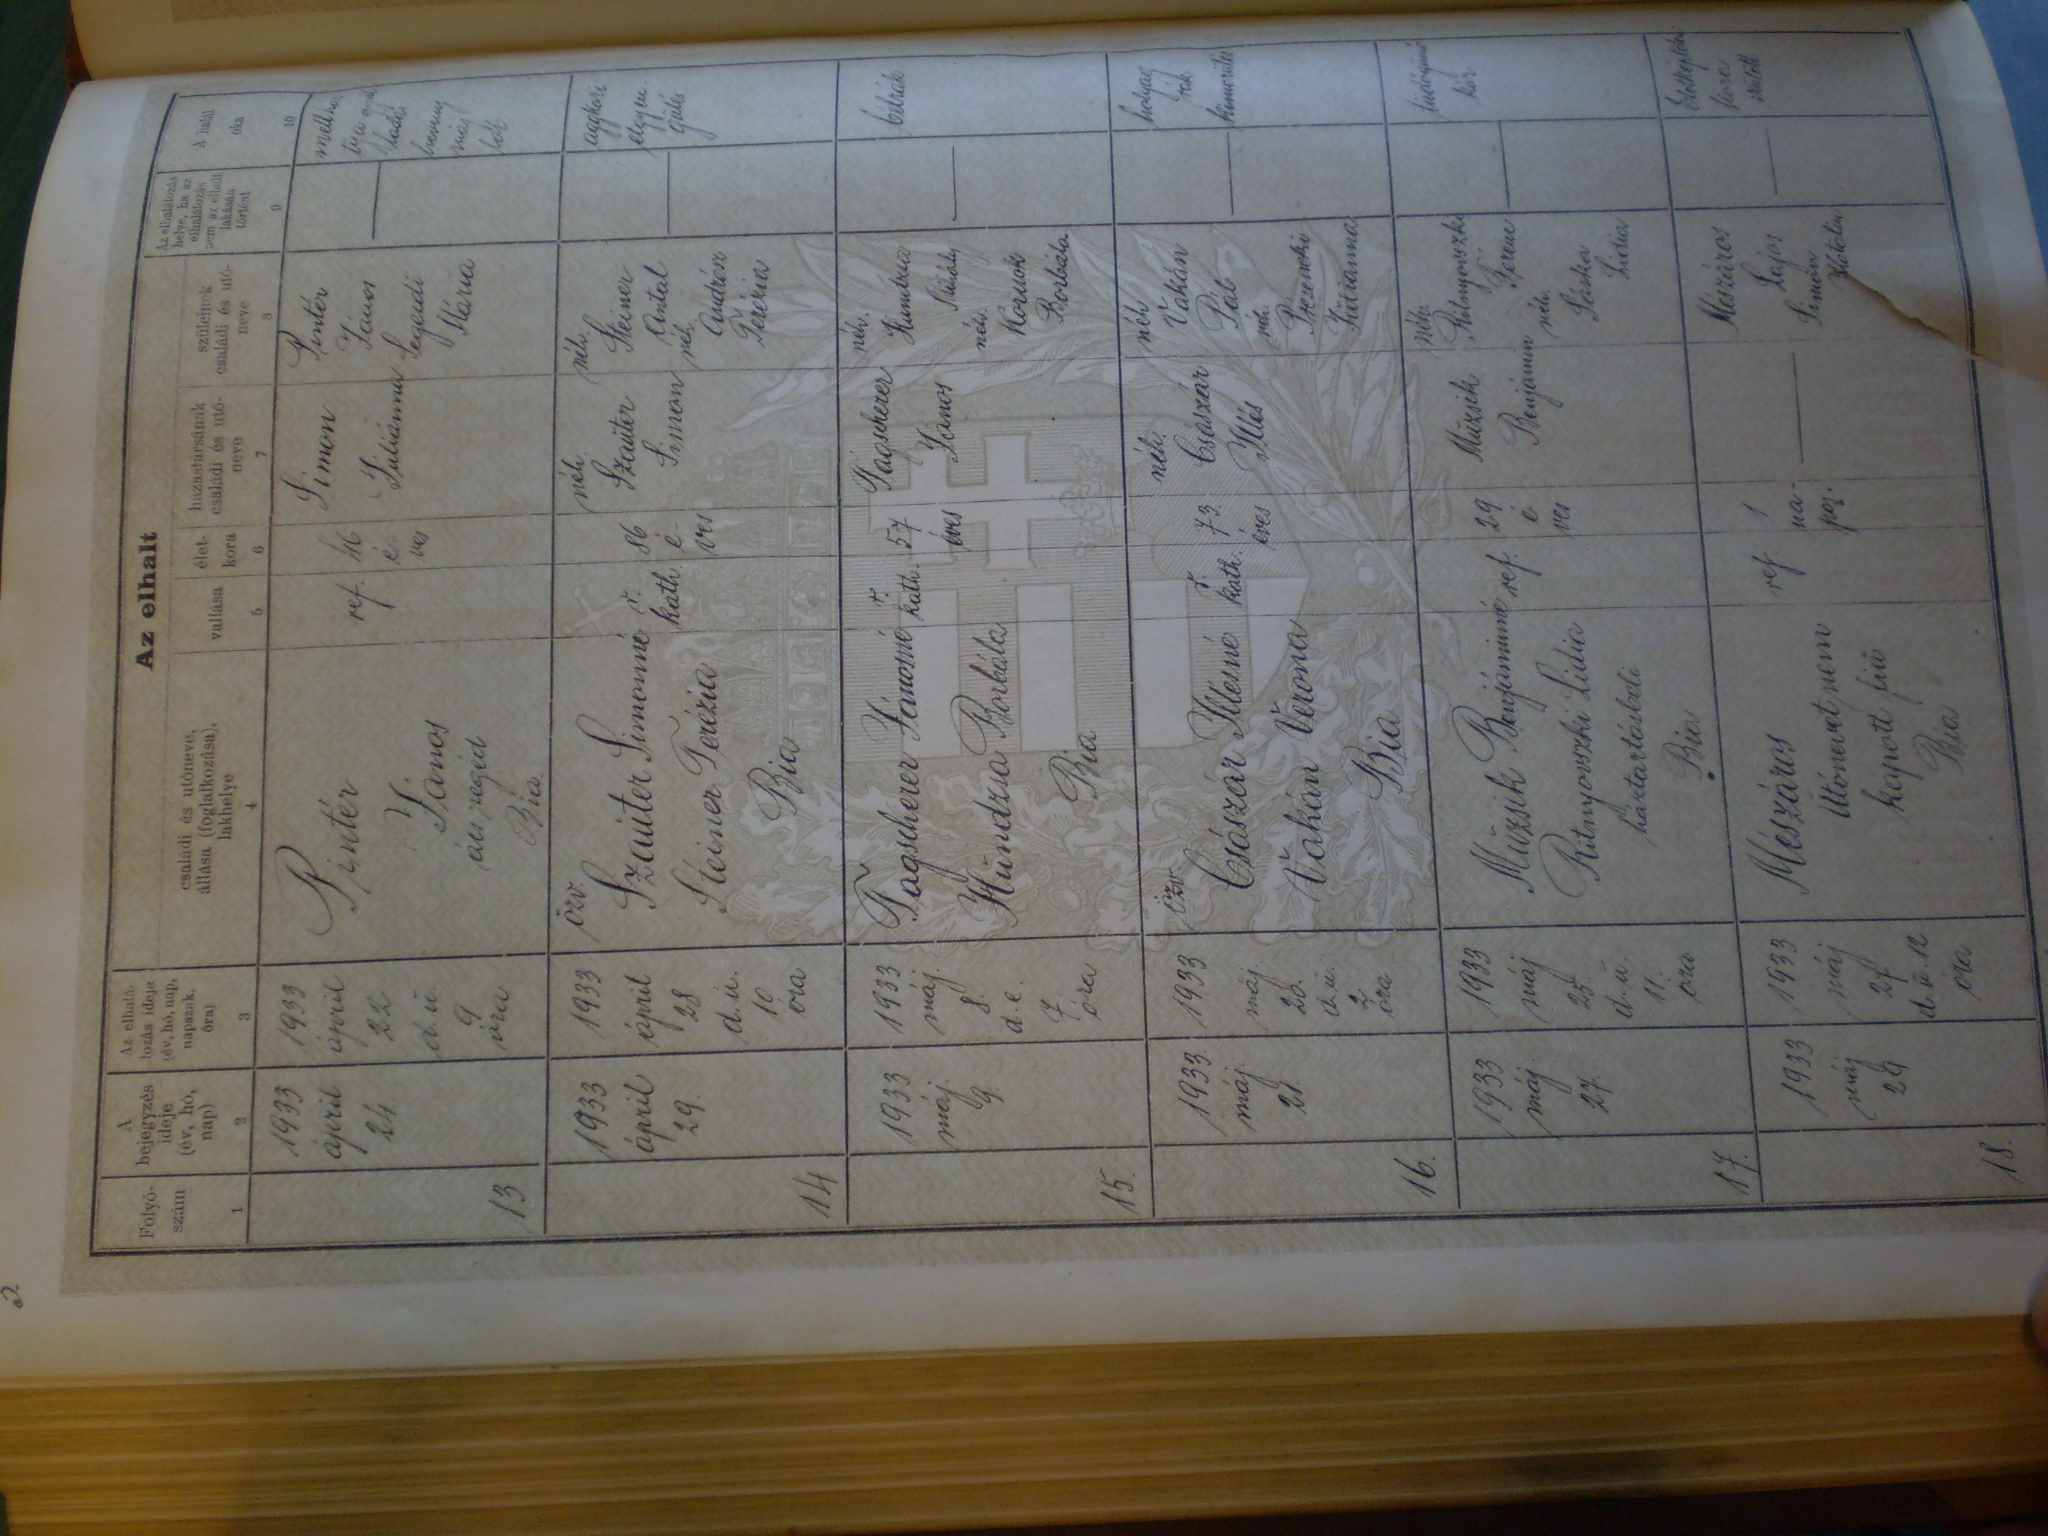 2.
Az elhalt
Folyó-
szám
A
bejegyzés
ideje
(év, hó,
nap)
Az elhalá-
lozás ideje
(év, hó, nap,
napszak,
óra)
családi és utóneve,
állása (foglalkozása),
lakhelye
vallása
élet-
kora
házastársának
családi és utó-
neve
szüleinek
családi és utó-
neve
Az elhalálozás
helye, ha az
elhalálozás
nem az elhalt
lakásán
történt
A halál
oka
1
2
3
4
5
6
7
8
9
10
13
1933
ápril
24.
1933
ápril
22
d. u.
9
óra
Pintér
János
ács segéd
Bia
ref.
46
é-
ves
Simon
Juliánna
Pintér
János
Segesdi
Mária
14
1933
ápril
29.
1933
ápril
28
d. u.
10
óra
özv.
Szauter Simonné
Steiner Terézia
Bia
r.
kath.
86
é-
ves
néh.
Szauter
Simon
néh.
Steiner
Antal
néh.
András
Terézia
aggkori
elgyen-
gülés
15.
1933
máj.
9.
1933
máj.
8.
d. e.
7
óra
Tagscherer Jánosné
Kundzia Borbála
Bia
r.
kath.
57
éves
Tagscherer
János
néh.
Kundzia
Mihály
néh.
Kornok
Borbála
bélrák
16.
1933.
máj.
21.
1933
máj.
20.
d. u.
2
óra
özv.
Császár Illésné
Vakán Verona
Bia
r.
kath.
73.
éves
néh.
Császár
Illés
néh
Vakán
Pál
néh.
Juliánna
hólyag
rák
kimerülés
17.
1933
máj.
27.
1933
máj
25
d. u.
11.
óra
Muzsik Benjáminné
Ritnyovszki Lidia
háztartásbeli
Bia
ref.
29
é
ves
Muzsik
Benjámin
néh.
Ritnyovszki
Ferenc
néh.
Láska
Lidia
tüdőgümő
kór
18.
1933
máj
29
1933
máj
27
d. u. 12
óra
Mészáros
Utónevet nem
kapott fiú
Bia
ref
1
na-
pos.
Mészáros
Lajos
Simon
Katalin